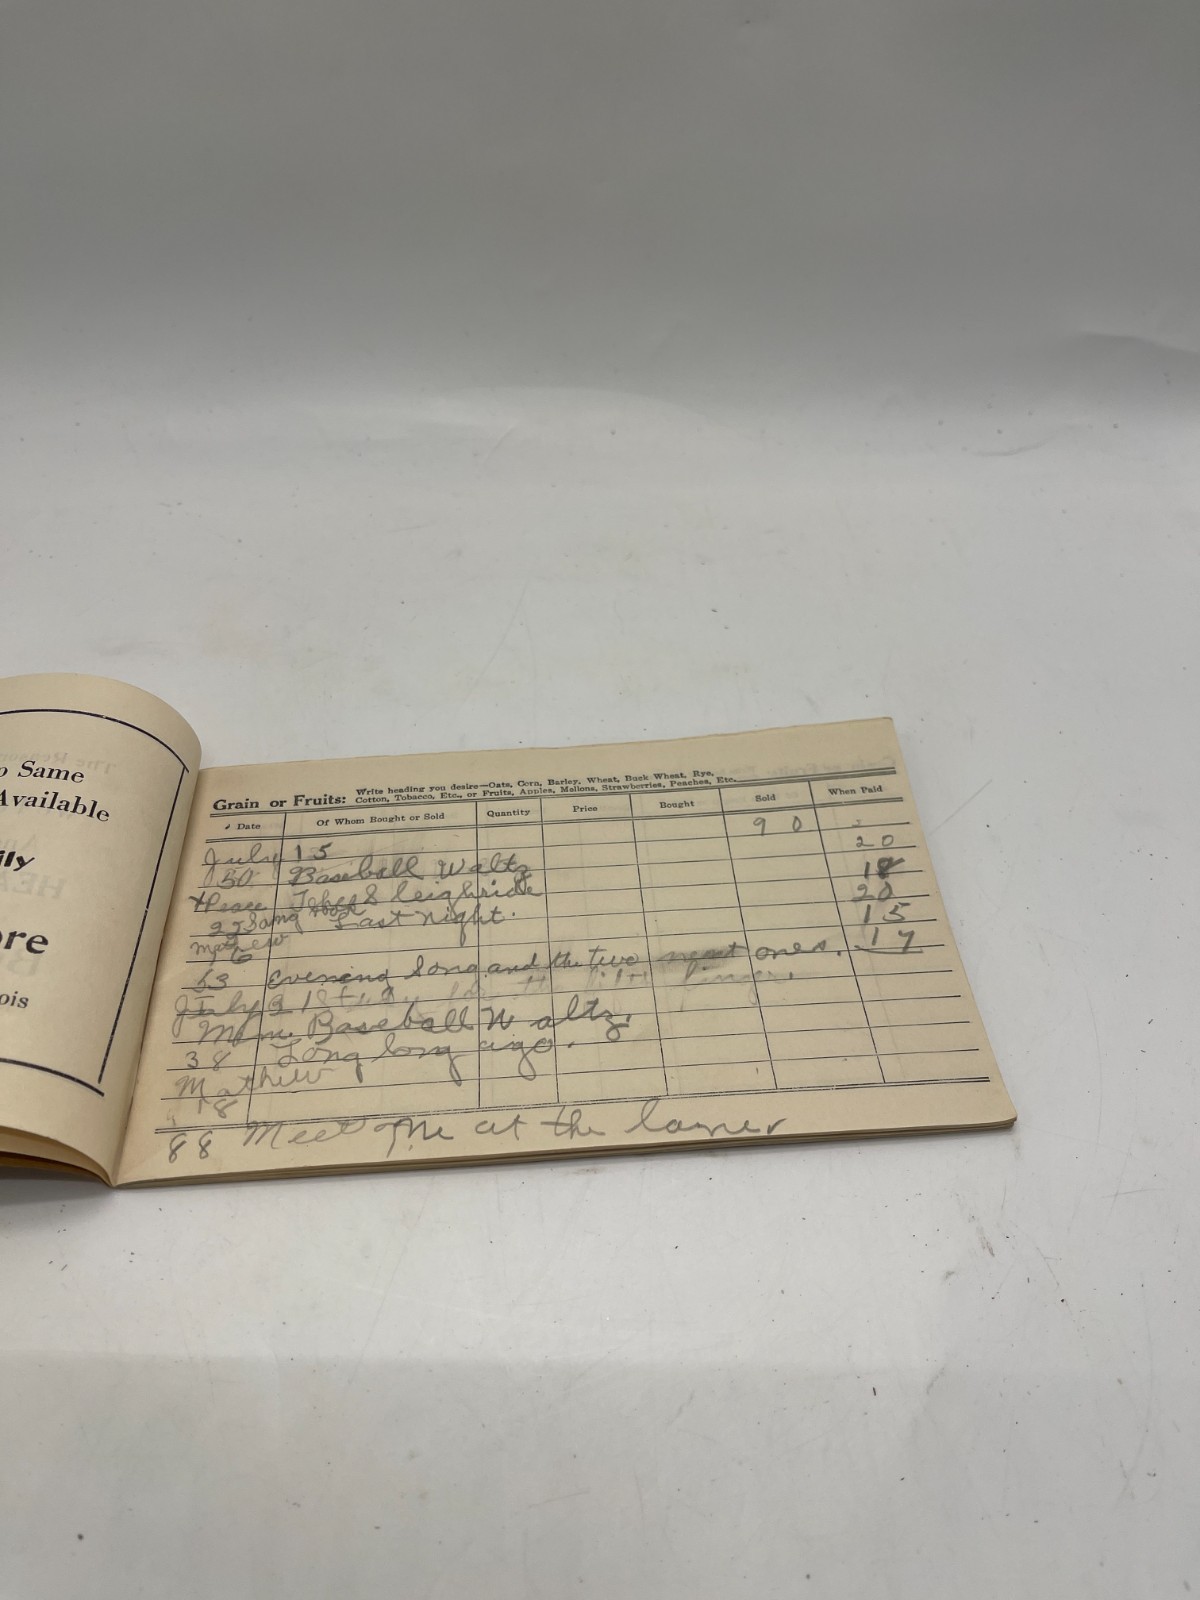 o Same
Available
ily
ore
ois
Grain or Fruits: Write heading you desire—Oats, Corn, Barley, Wheat, Buck Wheat, Rye,
Cotton, Tobacco, Etc., or Fruits, Apples, Mellons, Strawberries, Peaches, Etc.
Date Of Whom Bought or Sold Quantity Price Bought Sold When Paid
9 0
July 15 20
50 Baseball Waltz 18
Peace Sleighride 20
Sang Last night. 15
Mathew 17
16
53 Evening Song and the two next ones.
July 21
Baseball Waltz.
38 Long long ago.
Mathew
18
88 Meet Me at the